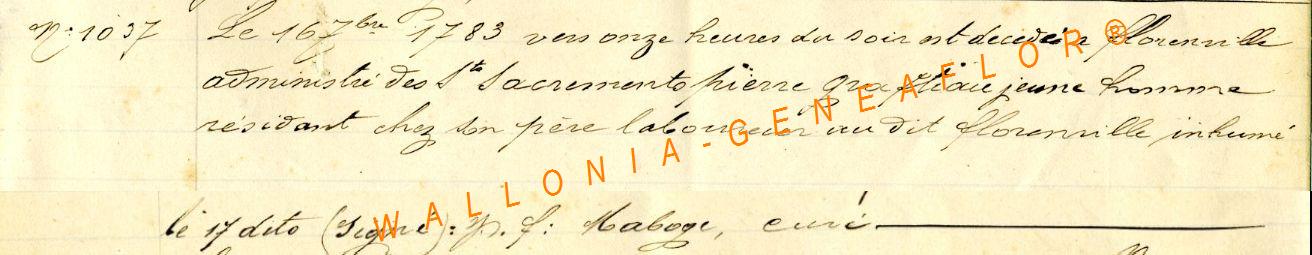 N: 1037 Le 16 7bre 1783 vers onze heures du soir est décédé à florenville
administré des Sts Sacrements pierre jeune homme
résidant chez son père laboureur au dit florenville inhumé
le 17 dito (Signé): p. f: Maboge, curé
WALLONIA-GENEAFLOR®